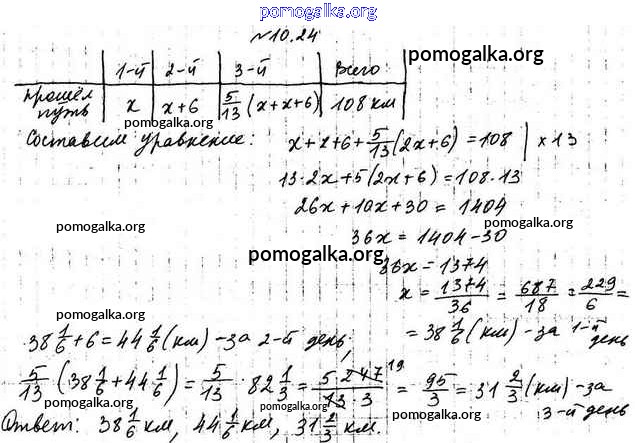 pomogalka.org
№10.24
pomogalka.org
1-й 2-й 3-й Всего
прошёл путь x x+6 5/13 (x+x+6) 108 км
pomogalka.org
Составим уравнение: x+x+6+5/13(2x+6)=108 | x13
13·2x+5(2x+6)=108·13
26x+10x+30=1404
pomogalka.org pomogalka.org
36x=1404-30
pomogalka.org
36x=1374
x=1374/36=687/18=229/6=
pomogalka.org
=38 1/6 (км) - за 1-й день
38 1/6+6=44 1/6 (км) - за 2-й день;
5/13 (38 1/6+44 1/6)=5/13·82 1/3=5 247 19/13·3=95/3=31 2/3 (км) - за 3-й день
pomogalka.org pomogalka.org pomogalka.org
Ответ: 38 1/6 км, 44 1/6 км, 31 2/3 км.